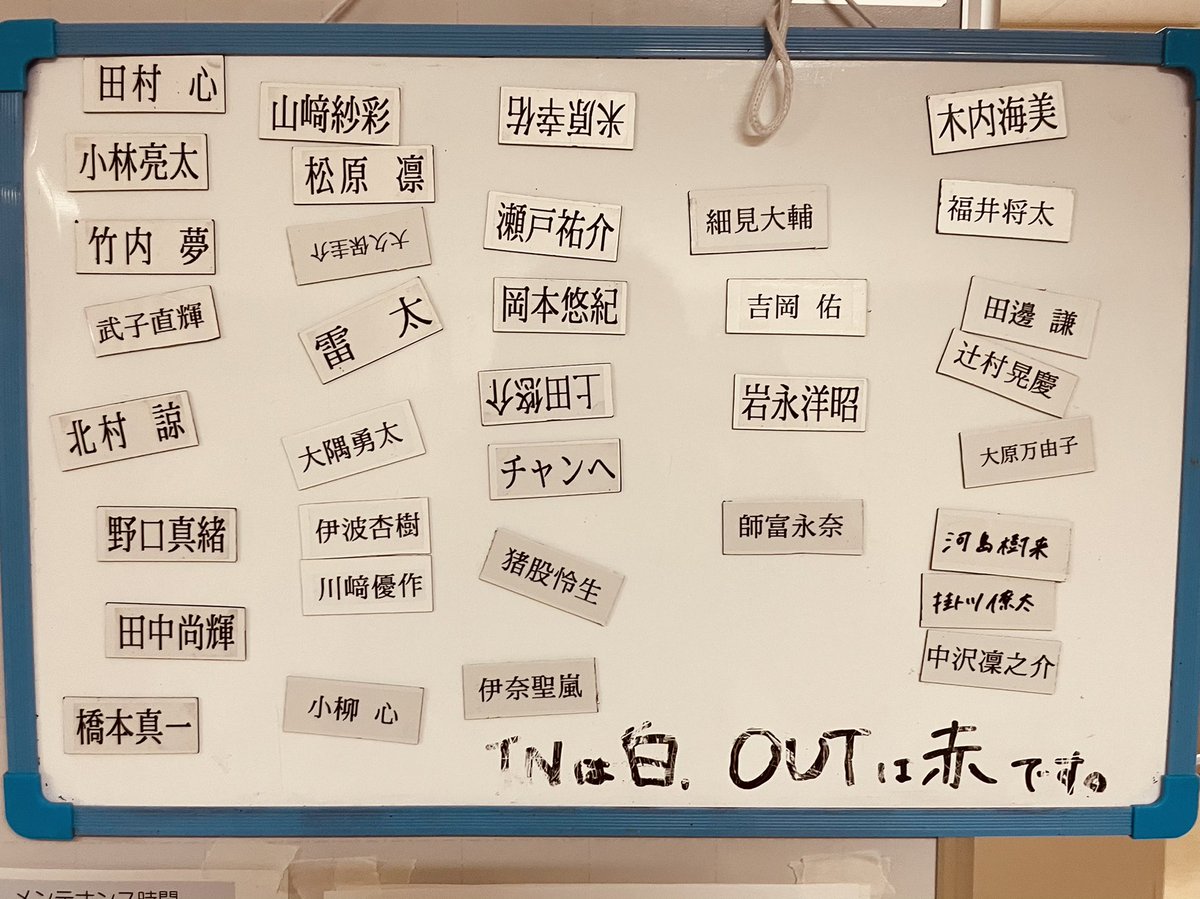 田村 心
小林亮太
竹内 夢
武子直輝
北村 諒
野口真緒
田中尚輝
橋本真一
山﨑紗彩
松原 凛
大久保圭介
雷 太
大隅勇太
伊波杏樹
川﨑優作
小柳 心
米原幸佑
瀬戸祐介
岡本悠紀
上田悠介
チャンヘ
猪股怜生
伊奈聖嵐
細見大輔
吉岡 佑
岩永洋昭
師富永奈
木内海美
福井将太
田邊 謙
辻村晃慶
大原万由子
河島樹来
掛川僚太
中沢凜之介
INは白. OUTは赤です。
メンテナンス時間